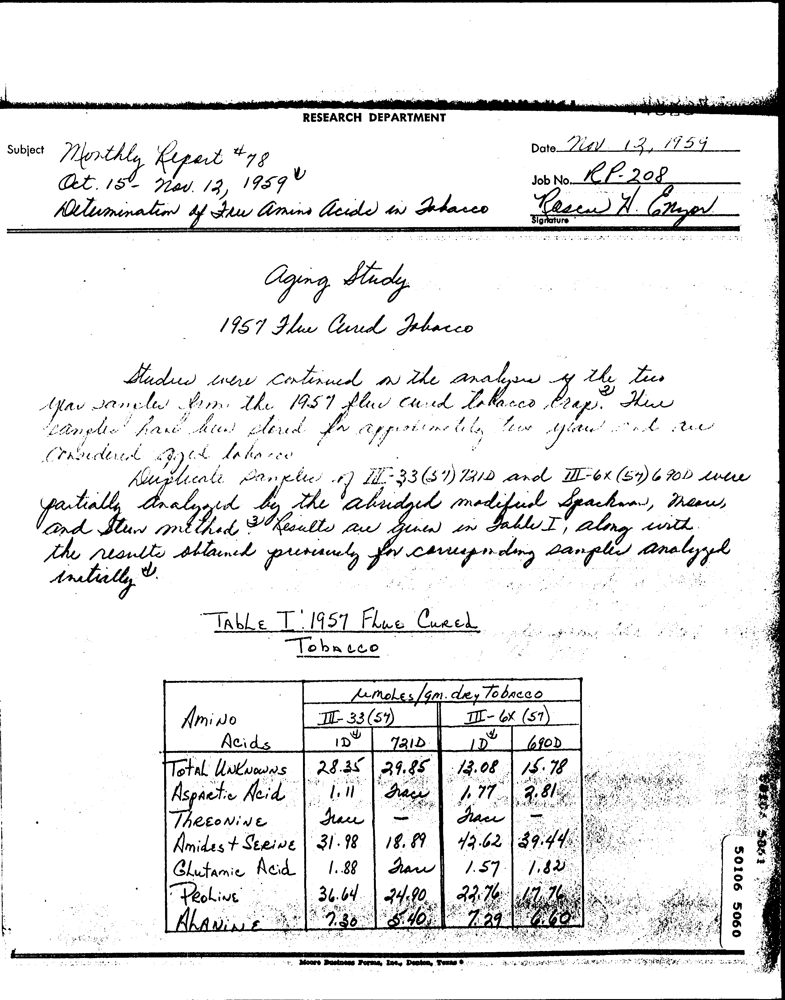 RESEARCH DEPARTMENT
Subject Monthly Report #78 Date Nov. 13, 1959
Oct. 15 - Nov. 12, 1959 Job No. RP-208
Determination of Free Amino Acids in Tobacco Signature
Aging Study
1957 Flue Cured Tobacco
Studies were continued on the analysis of the two
year samples from the 1957 flue cured tobacco crop. 2) These
samples have been stored for approximately two years and are
considered aged tobacco
Duplicate samples of III-33(57)721D and III-6X(57)690D were
partially analyzed by the abridged modified Spackman, Moore,
and Stein method 3) Results are given in Table I, along with
the results obtained previously for corresponding samples analyzed
initially 4).
TABLE I: 1957 Flue Cured
Tobacco
Amino Acids
µmoles/gm. dry Tobacco
III-33(57) III-6X (57)
1D 4) 721D 1D 4) 690D
Total Unknowns 28.35 29.85 13.08 15.78
Aspartic Acid 1.11 Trace 1.77 2.81
Threonine Trace — Trace —
Amides + Serine 31.98 18.89 42.62 39.44
Glutamic Acid 1.88 Trace 1.57 1.82
Proline 36.64 24.90 22.76 17.76
Alanine 7.30 5.40 7.29 6.60
50106 5060
Moore Business Forms, Inc., Denton, Texas